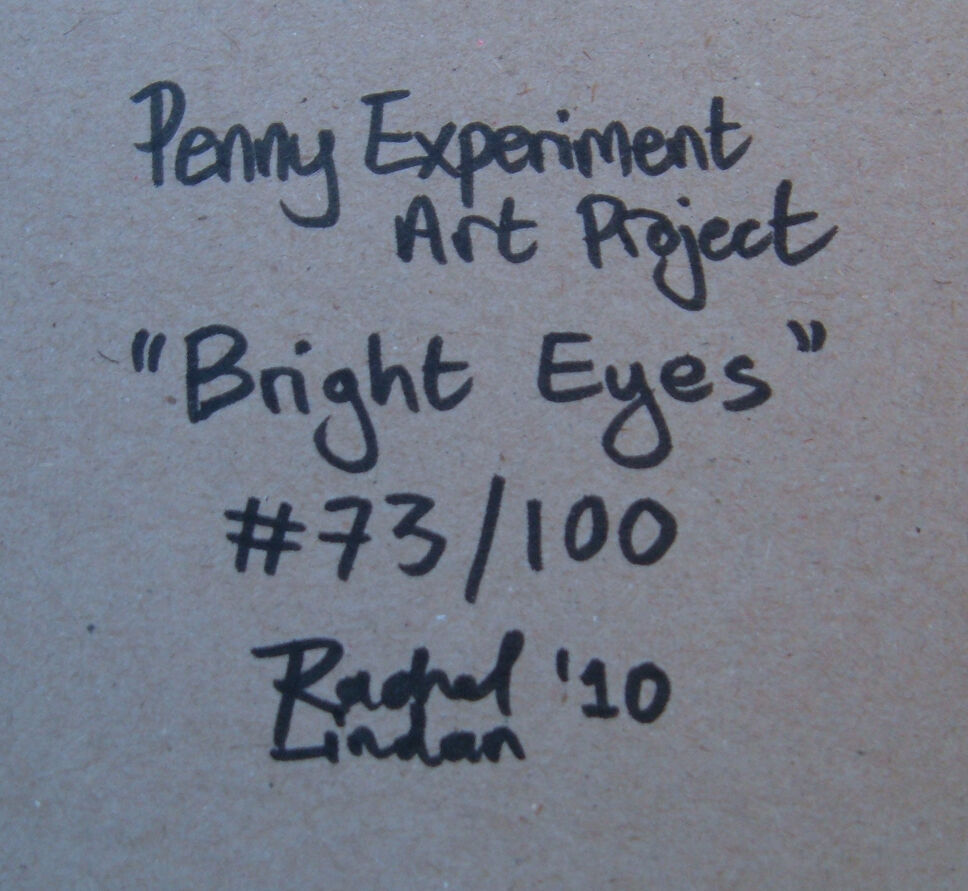 Penny Experiment
Art Project
"Bright Eyes"
#73/100
Rachel '10
Lindan